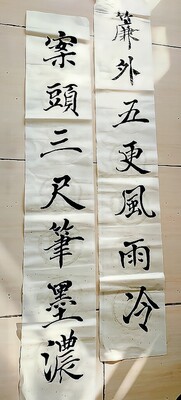 簾外五更風雨冷
案頭三尺筆墨濃